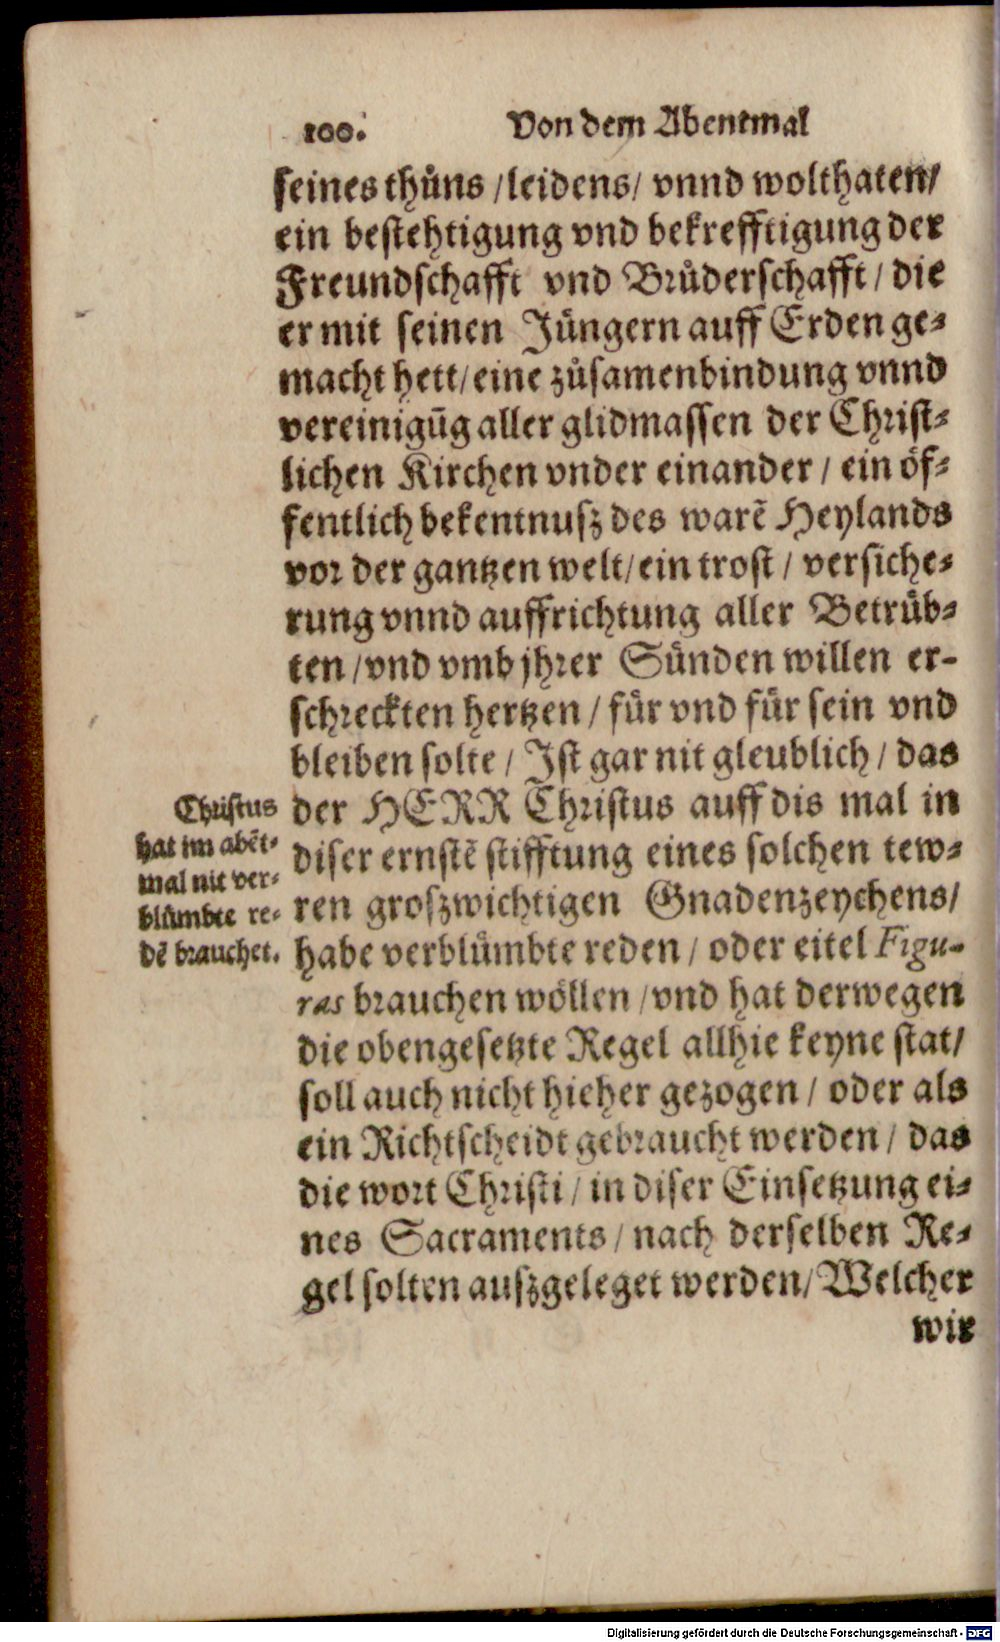 100. Von dem Abentmal
seines thůns / leidens / vnnd wolthaten /
ein bestehtigung vnd bekrefftigung der
Freundschafft vnd Brůderschafft / die
er mit seinen Jüngern auff Erden ge⸗
macht hett / eine zůsamenbindung vnnd
vereinigūg aller glidmassen der Christ⸗
lichen Kirchen vnder einander / ein öf⸗
fentlich bekentnusz des warẽ Heylands
vor der gantzen welt / ein trost / versiche⸗
rung vnnd auffrichtung aller Betrüb⸗
ten / vnd vmb jhrer Sünden willen er-
schreckten hertzen / für vnd für sein vnd
bleiben solte / Ist gar nit gleublich / das
der HERR Christus auff dis mal in
diser ernstẽ stifftung eines solchen tew⸗
ren groszwichtigen Gnadenzeychens /
habe verblümbte reden / oder eitel Figu-
ras brauchen wöllen / vnd hat derwegen
die obengesetzte Regel allhie keyne stat /
soll auch nicht hieher gezogen / oder als
ein Richtscheidt gebraucht werden / das
die wort Christi / in diser Einsetzung ei⸗
nes Sacraments / nach derselben Re⸗
gel solten auszgeleget werden / Welcher
wir
Christus
hat im abẽt⸗
mal nit ver⸗
blümbte re⸗
dẽ brauchet.
Digitalisierung gefördert durch die Deutsche Forschungsgemeinschaft - DFG